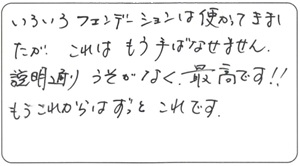 いろいろフェンデーションは使かってきまし
たが これは もう手ばなせません.
説明通り うそがなく.最高です!!
もうこれからはずっと これです.